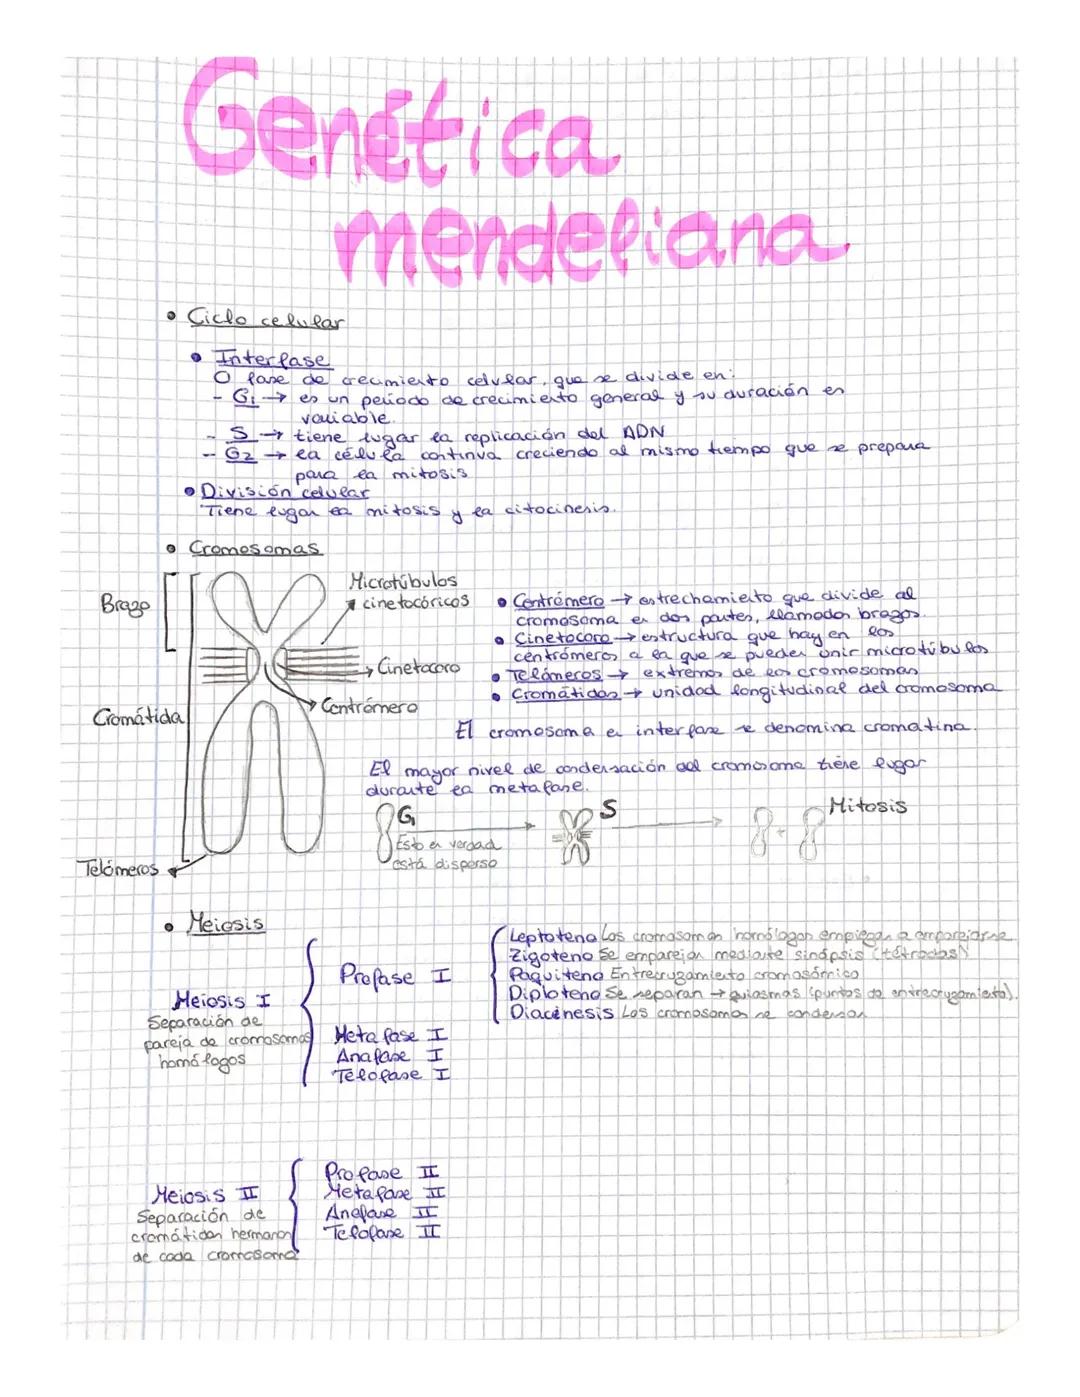 Genética
mendeliana
• Ciclo celular
• Interfase
O fase de crecimiento celular, que se divide en:
- G1 → es un periodo de crecimiento general y su duración es
variable.
- S → tiene lugar la replicación del ADN
- G2 → la célula continua creciendo al mismo tiempo que se prepara
para la mitosis
• División celular
Tiene lugar la mitosis y la citocinesis.
• Cromosomas
Brazo
Microtúbulos
cinetocóricos
Cinetocoro
Centrómero
Cromátida
Telómeros
• Centrómero → estrechamiento que divide al
cromosoma en dos partes, llamados brazos.
• Cinetocoro → estructura que hay en los
centrómeros a la que se pueden unir microtúbulos
• Telómeros → extremos de los cromosomas
• Cromátidas → unidad longitudinal del cromosoma
El cromosoma en interfase se denomina cromatina.
El mayor nivel de condensación del cromosoma tiene lugar
durante la metafase.
G1 S Mitosis
Esto en verdad
está disperso
• Meiosis
Meiosis I
Separación de
pareja de cromosomas
homólogos
Profase I
Metafase I
Anafase I
Telofase I
Leptoteno Los cromosomas homólogos empiezan a emparejarse
Zigoteno Se emparejan mediante sinápsis (tétradas)
Paquiteno Entrecruzamiento cromosómico
Diploteno Se separan → quiasmas (puntos de entrecruzamiento).
Diacinesis Los cromosomas se condensan
Meiosis II
Separación de
cromátidas hermanas
de cada cromosoma
Profase II
Metafase II
Anafase II
Telofase II